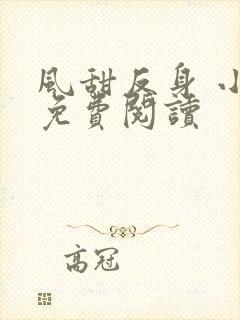 風甜反身 小
免費閱讀
高冠